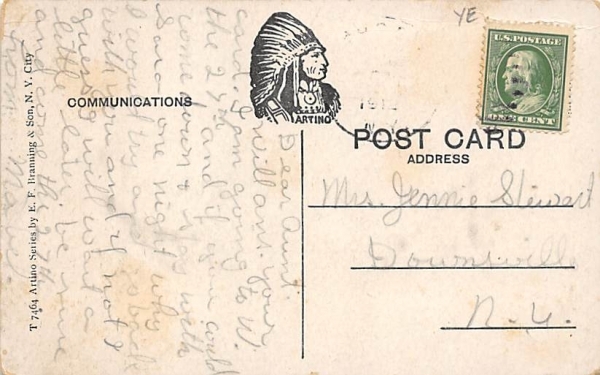 T 7464 Artino Series by E. F. Branning & Son, N. Y. City
COMMUNICATIONS
ARTINO
POST CARD
ADDRESS
U.S. POSTAGE
ONE CENT
YE
Mrs. Jennie Stewart
Downsville
N. Y.
Dear Aunt.
I will ans. your
card. I am going to W.
the 2 and if you could
come down & go with
Sara one night why
I would try and come back
with you and if not I
guess will wait a
little later, be sure
and come the 27th
from